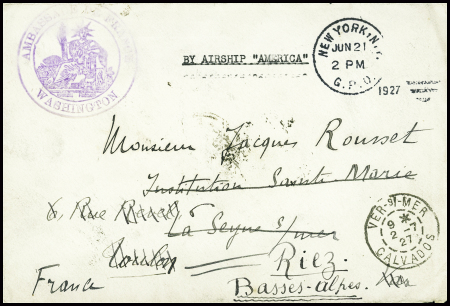 AMBASSADE
WASHINGTON
BY AIRSHIP "AMERICA"
NEW YORK, N.Y.
JUN 21
2 PM
G.P.O.
1927
Monsieur Jacques Rousset
Institution Sainte Marie
6, Rue
La Seyne s/mer
Toulon
Riez
France
Basses-Alpes.
VER-S-MER
9-7
27
CALVADOS